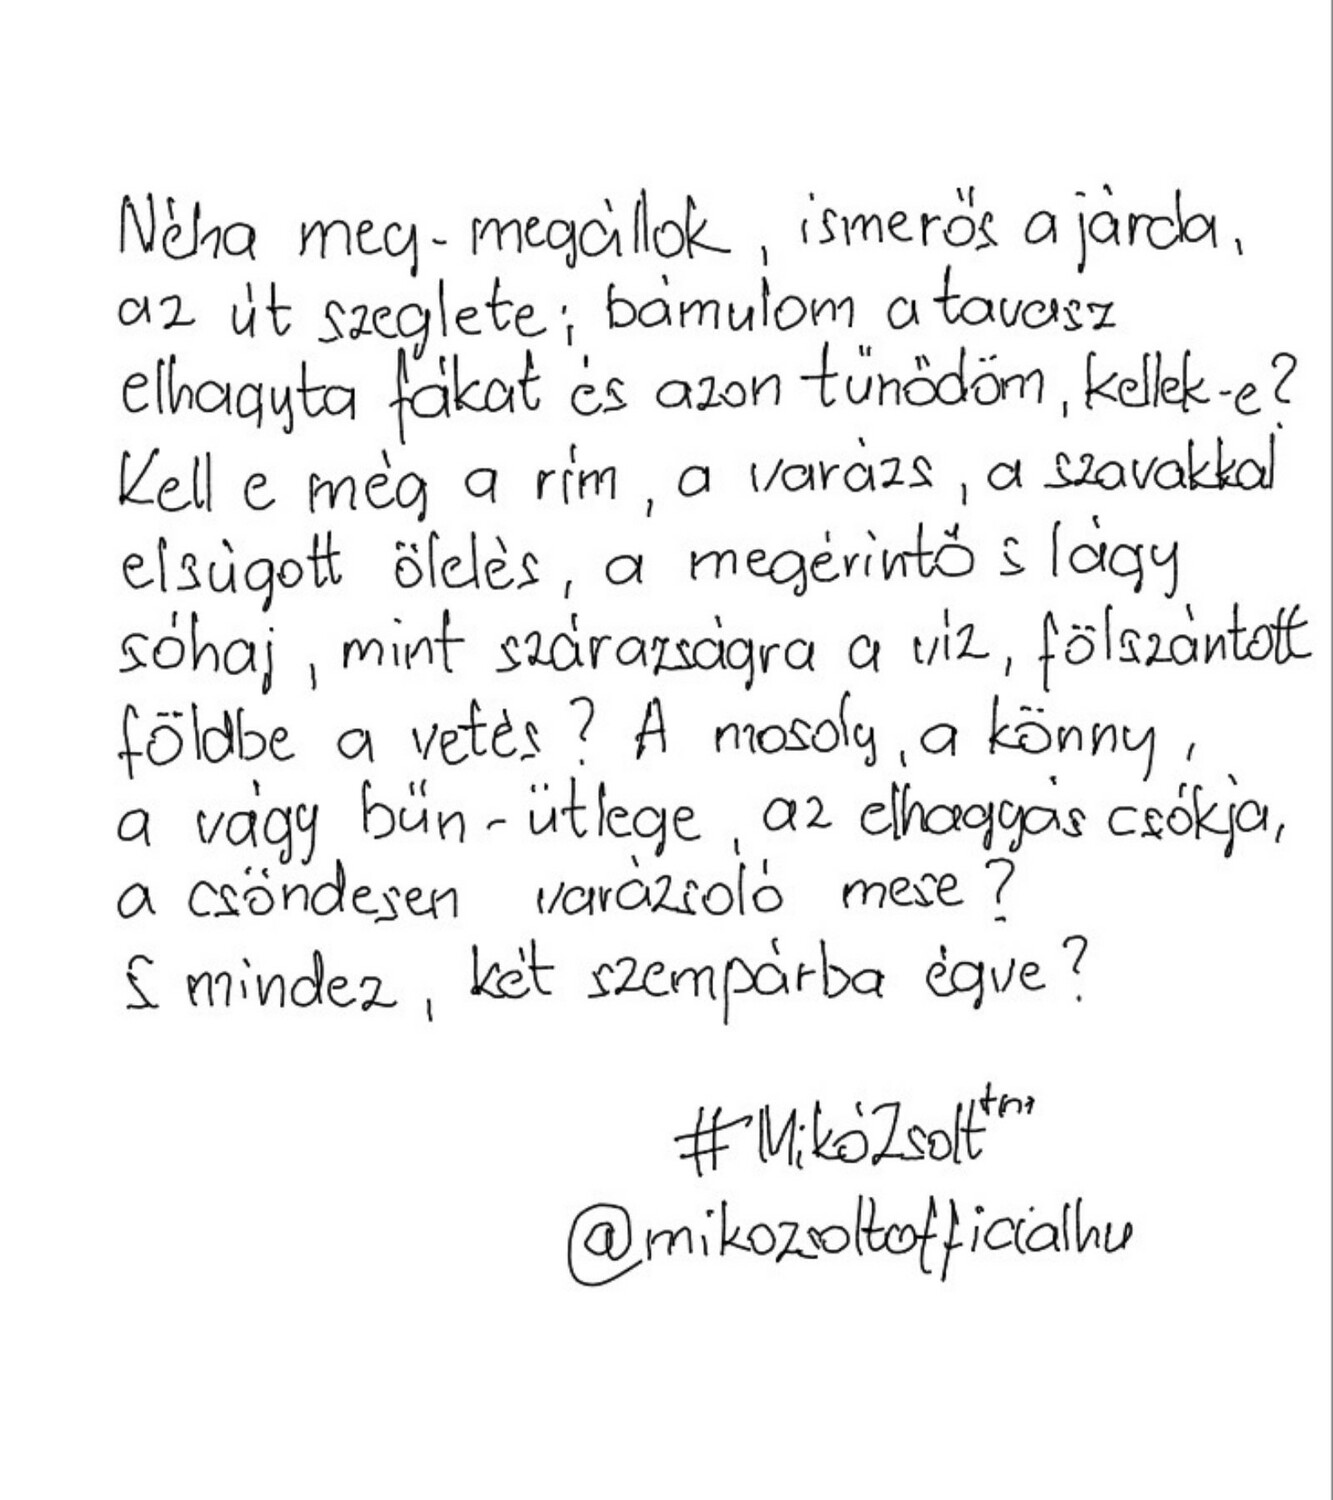 Néha meg-megállok, ismerős a járda,
az út szeglete; bámulom a tavasz
elhagyta fákat és azon tűnődöm, kellek-e?
Kell e még a rím, a varázs, a szavakkal
elsúgott ölelés, a megérintő s lágy
sóhaj, mint szárazságra a víz, fölszántott
földbe a vetés? A mosoly, a könny,
a vágy bűn-ütlege, az elhagyás csókja,
a csöndesen varázsoló mese?
S mindez, két szempárba égve?
#MikóZsolt™
@mikozsoltofficialhu